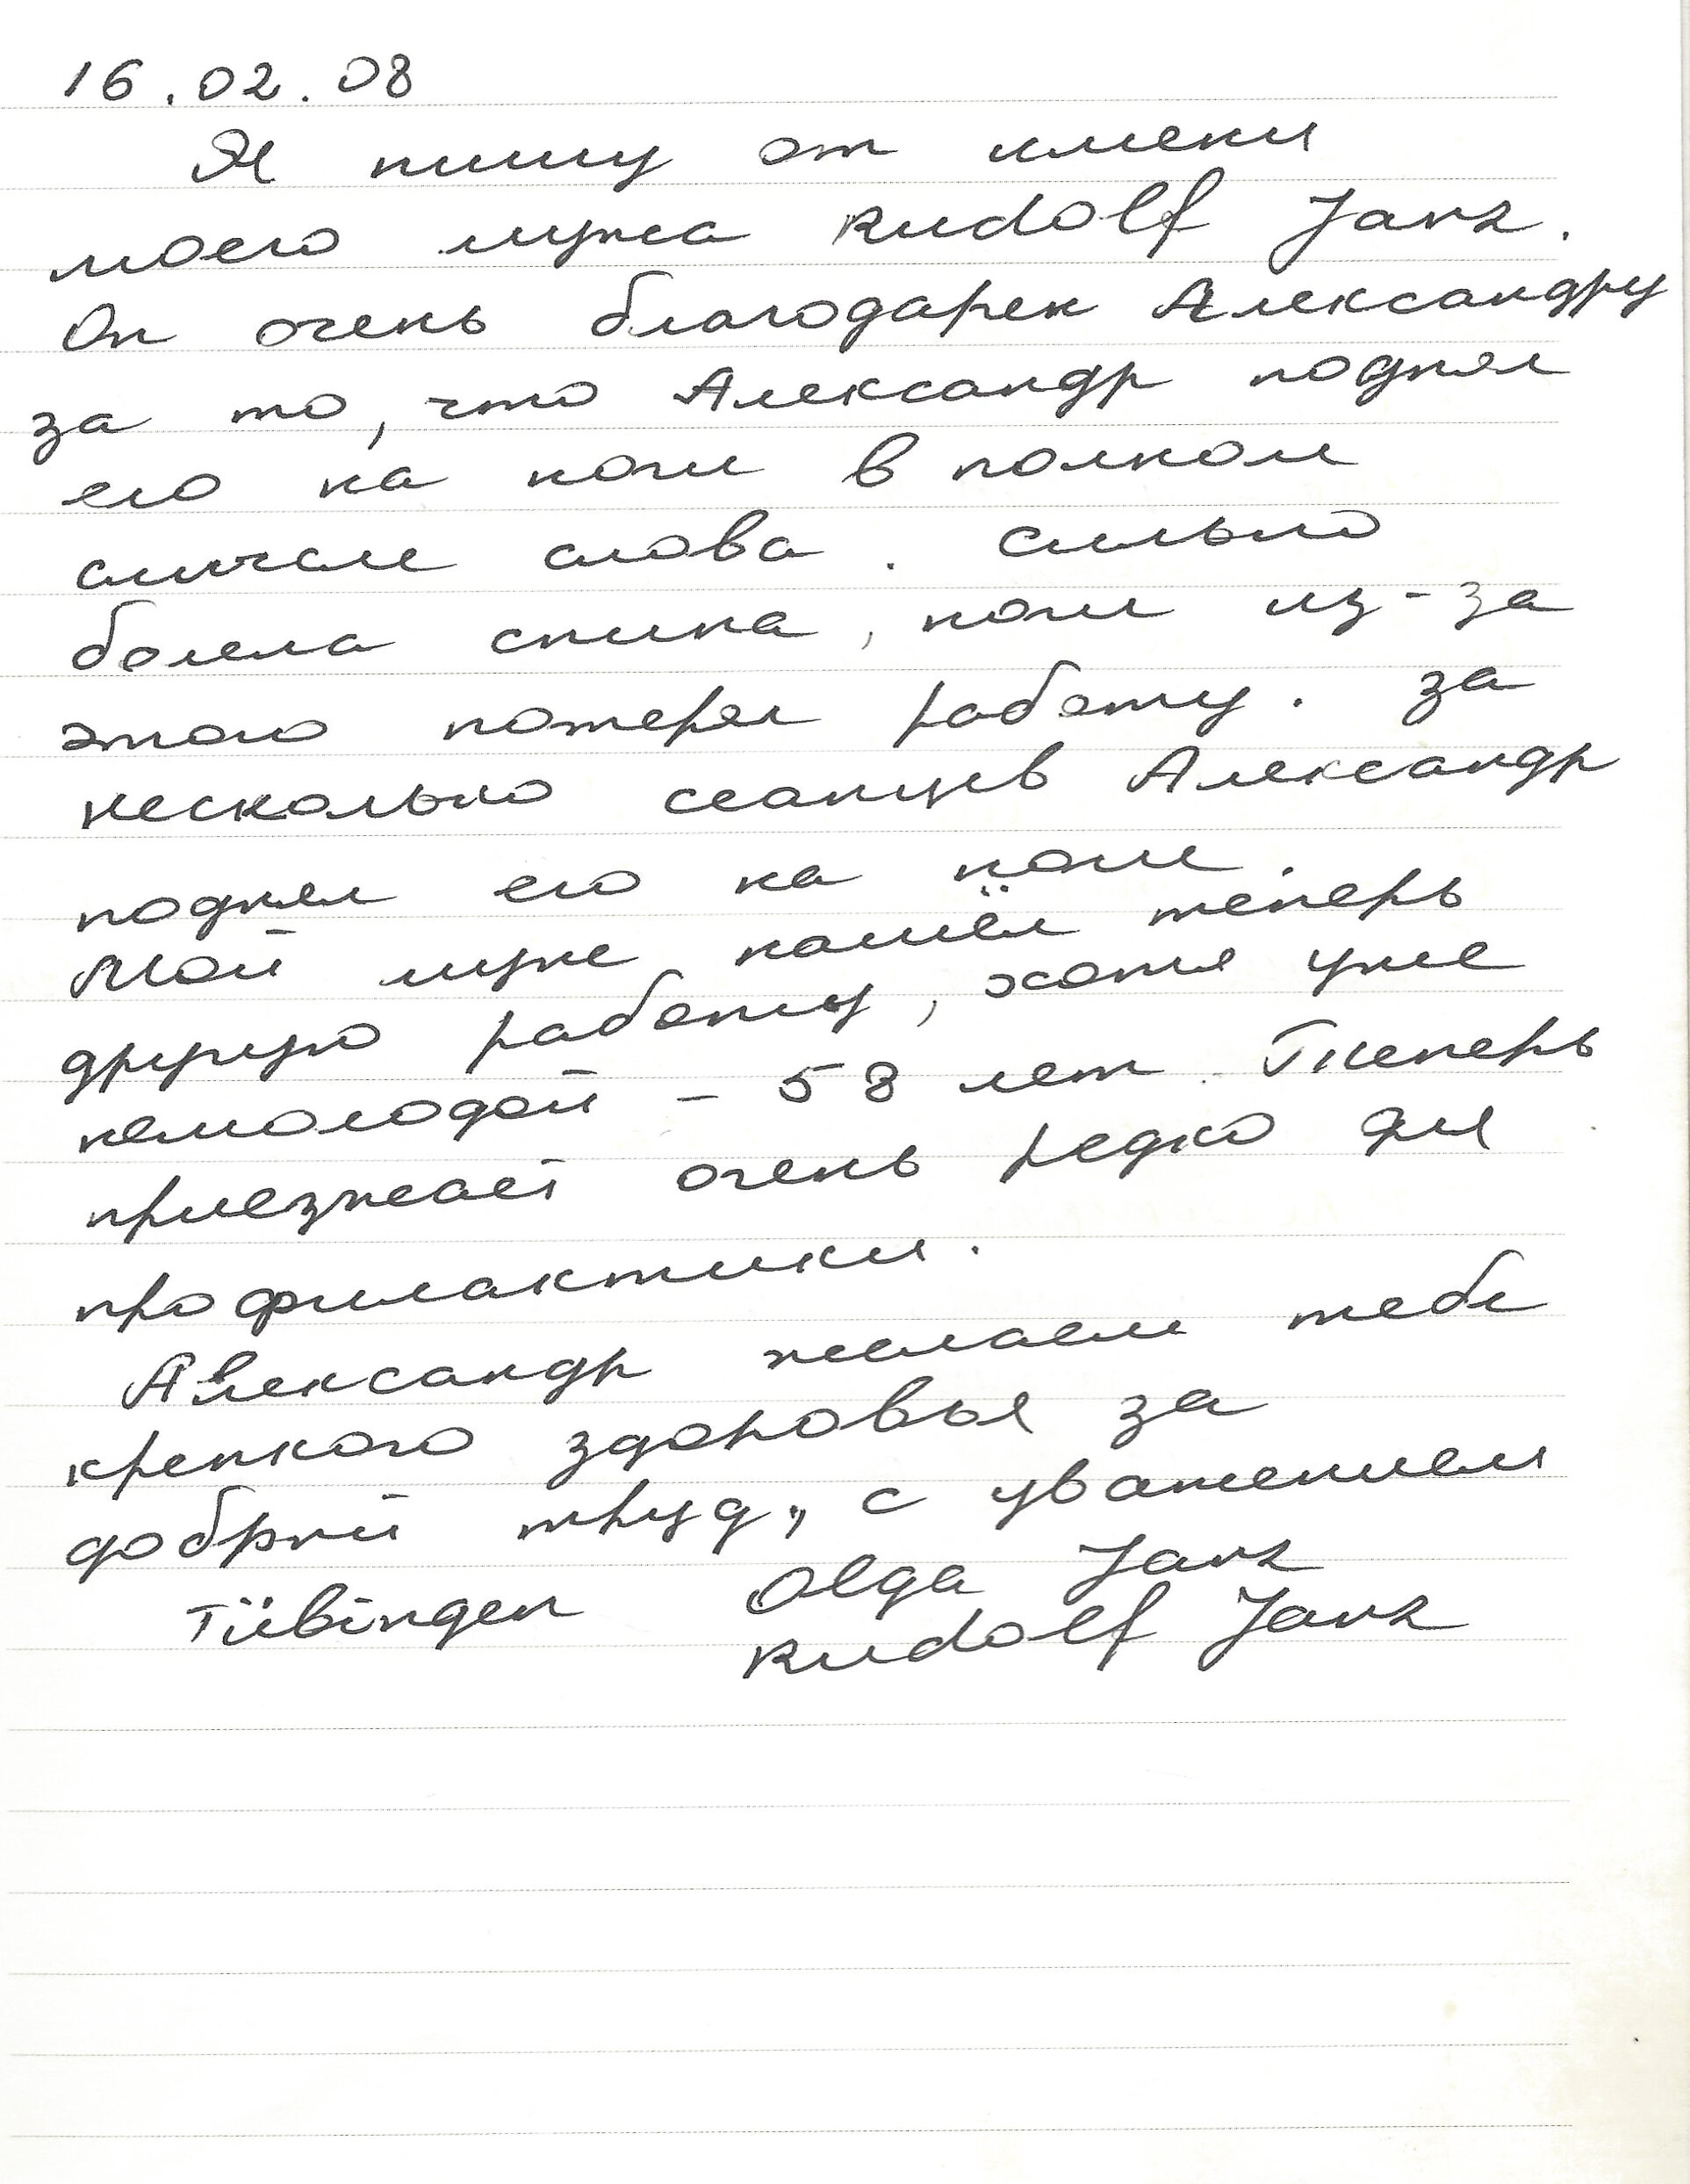 16.02.08
Я пишу от имени
моего мужа Rudolf Janz.
Он очень благодарен Александру
за то, что Александр поднял
его на ноги в полном
смысле слова. Сильно
болела спина, ноги из-за
этого потерял работу. За
несколько сеансов Александр
поднял его на ноги.
Мой муж нашёл теперь
другую работу, хотя уже
немолодой - 58 лет. Теперь
приезжает очень редко для
профилактики.
Александр желаем тебе
крепкого здоровья за
добрый труд, с уважением
Olga Janz
Tübingen Rudolf Janz